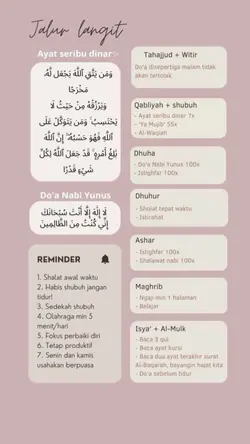 Jalur langit
Ayat seribu dinar:-
وَمَن يَتَّقِ ٱللَّهَ يَجْعَل لَّهُۥ
مَخْرَجًا
وَيَرْزُقْهُ مِنْ حَيْثُ لَا
يَحْتَسِبُ ۚ وَمَن يَتَوَكَّلْ عَلَى
ٱللَّهِ فَهُوَ حَسْبُهُۥٓ ۚ إِنَّ ٱللَّهَ
بَٰلِغُ أَمْرِهِۦ ۚ قَدْ جَعَلَ ٱللَّهُ لِكُلِّ
شَىْءٍ قَدْرًا
Do'a Nabi Yunus
لَا إِلَٰهَ إِلَّا أَنْتَ سُبْحَانَكَ
إِنِّي كُنْتُ مِنَ الظَّالِمِينَ
REMINDER
1. Shalat awal waktu
2. Habis shubuh jangan
tidur!
3. Sedekah shubuh
4. Olahraga min 5
menit/hari
5. Fokus perbaiki diri
6. Tetap produktif
7. Senin dan kamis
usahakan berpuasa
Tahajjud + Witir
Do'a disepertiga malam tidak
akan tertolak
Qabliyah + shubuh
- Ayat seribu dinar 7x
- 'Ya Mujib' 55x
- Al-Waqiah
Dhuha
- Do'a Nabi Yunus 100x
- Istighfar 100x
Dhuhur
- Sholat tepat waktu
- Istirahat
Ashar
- Istighfar 100x
- Shalawat nabi 100x
Maghrib
- Ngaji min 1 halaman
- Belajar
Isya' + Al-Mulk
- Baca 3 qul
- Baca ayat kursi
- Baca dua ayat terakhir surat
Al-Baqarah, bayangin hajat kita
- Do'a sebelum tidur